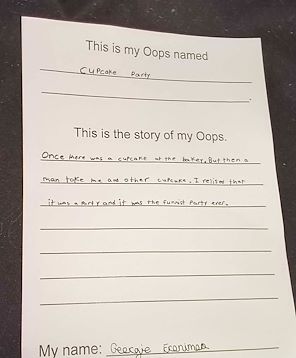 This is my Oops named
Cupcake Party
This is the story of my Oops.
Once there was a cupcake at the baker. But then a
man take me and other cupcake. I relised that
it was a party and it was the funnist Party ever.
My name: Georgie